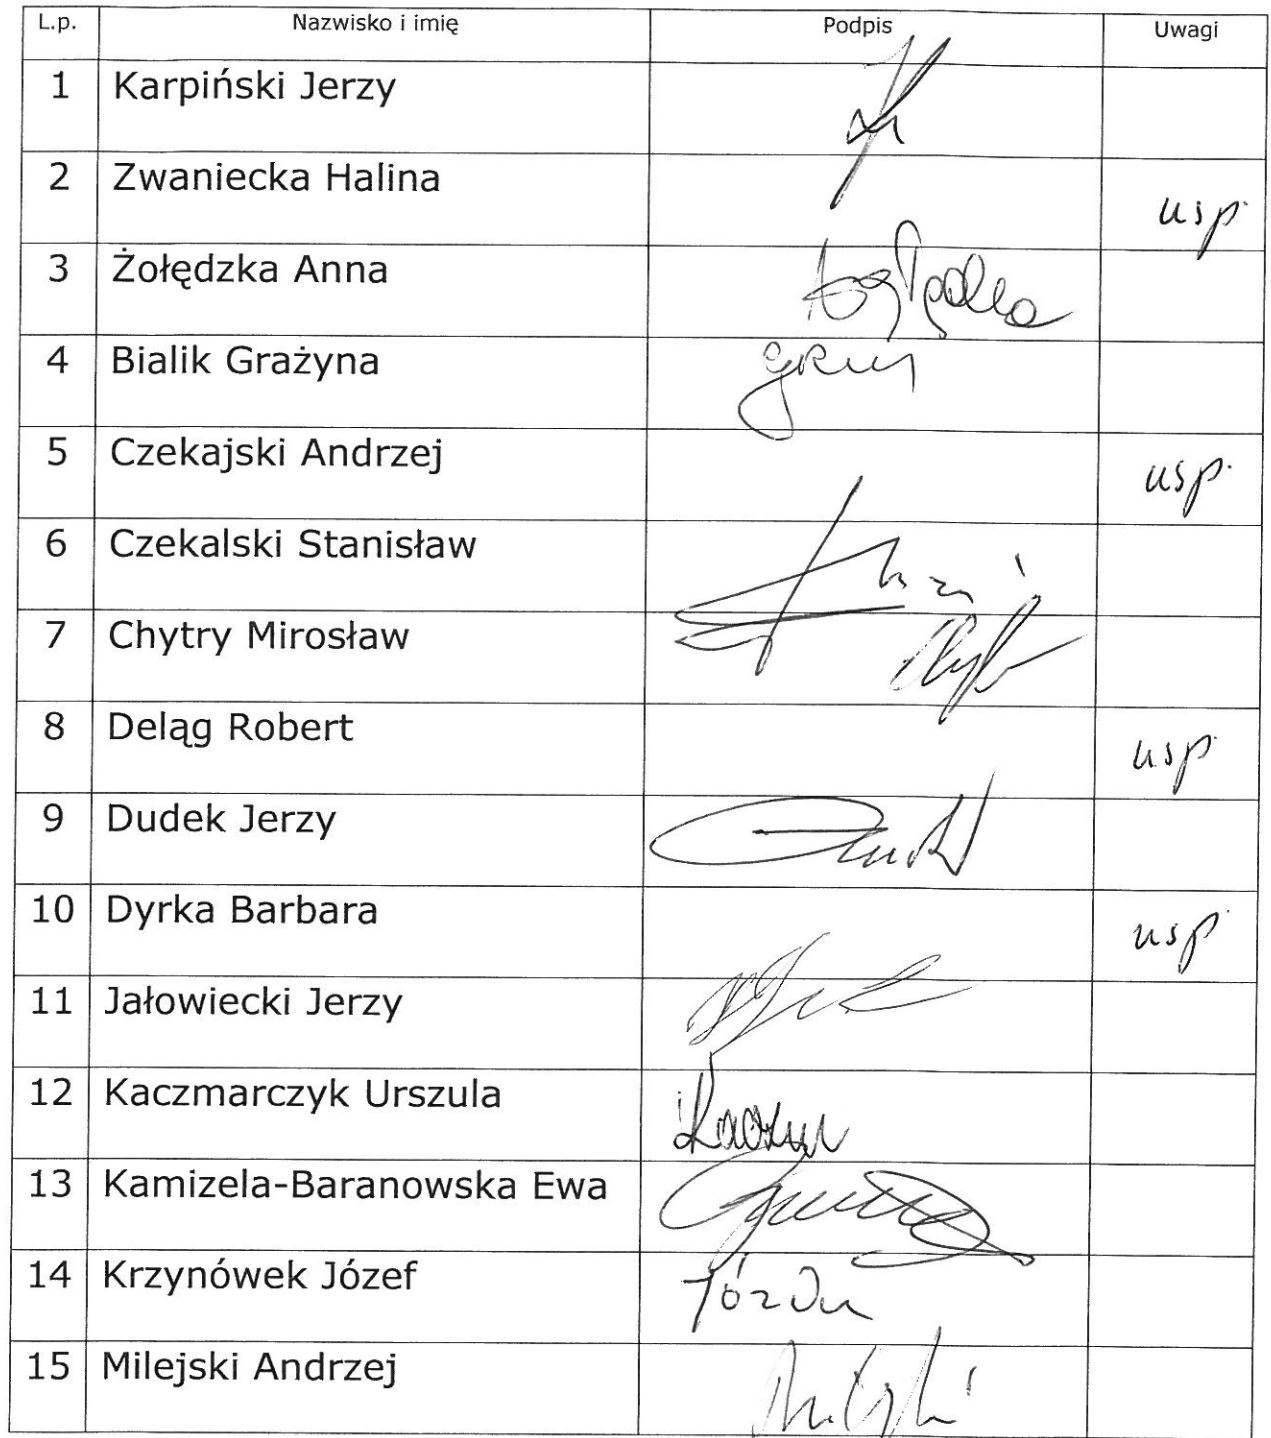 L.p. Nazwisko i imię Podpis Uwagi
1 Karpiński Jerzy
2 Zwaniecka Halina usp.
3 Żołędzka Anna
4 Bialik Grażyna
5 Czekajski Andrzej usp.
6 Czekalski Stanisław
7 Chytry Mirosław
8 Deląg Robert usp.
9 Dudek Jerzy
10 Dyrka Barbara usp.
11 Jałowiecki Jerzy
12 Kaczmarczyk Urszula
13 Kamizela-Baranowska Ewa
14 Krzynówek Józef
15 Milejski Andrzej